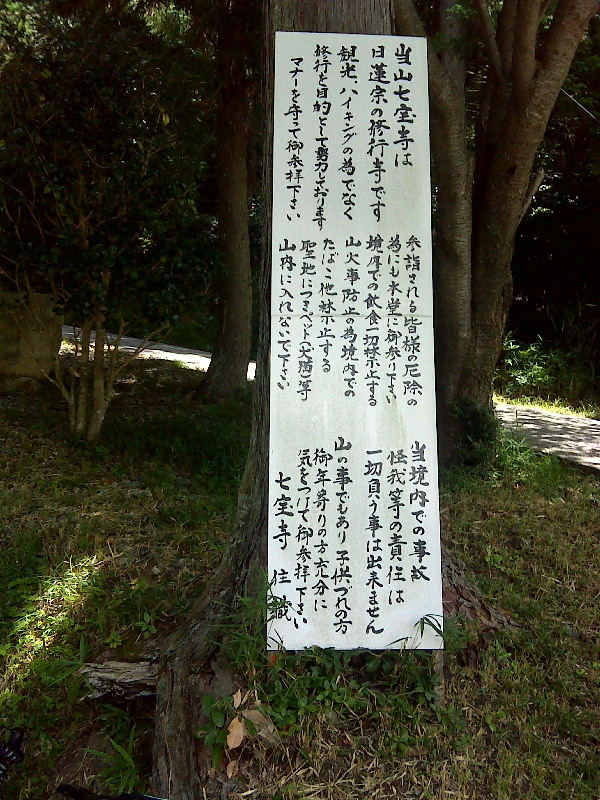 当山七宝寺は
日蓮宗の修行寺です
観光、ハイキングの為でなく
修行を目的として努力しております
マナーを守って御参拝下さい
参詣される皆様の厄除の
為にも本堂に御参り下さい
境内での飲食一切禁止する
山火事防止の為境内での
たばこ他禁止する
聖地につきペット(犬猫)等
山内に入れないで下さい
当境内での事故
怪我等の責任は
一切負う事は出来ません
山の事でもあり子供づれの方
御年寄りの方充分に
気をつけて御参拝下さい
七宝寺 住職